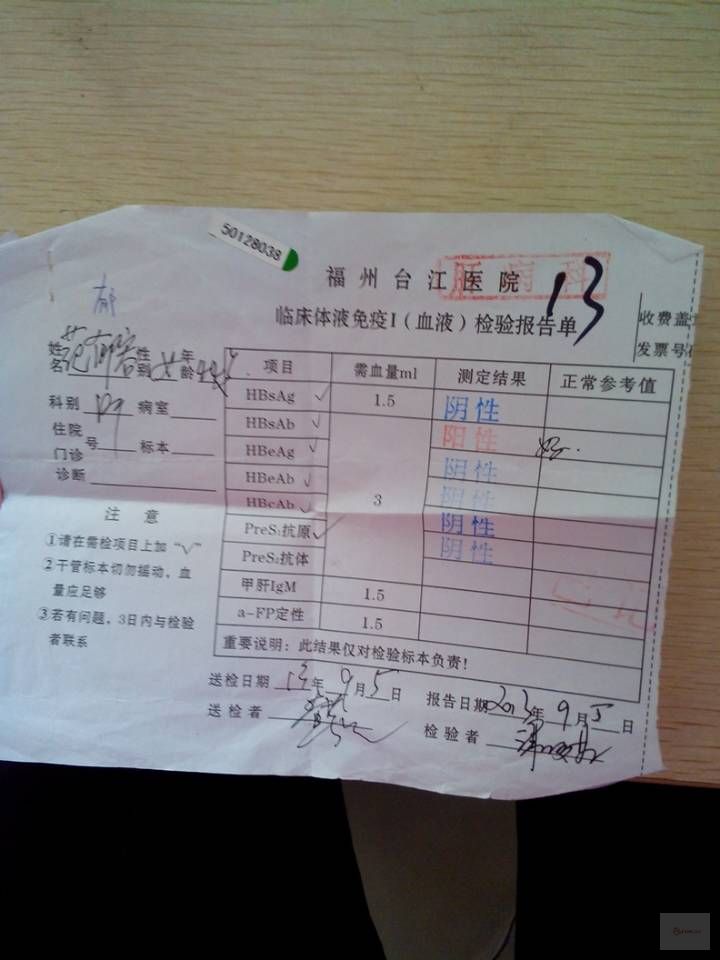 50128038
福州台江医院
肝病科
13
临床体液免疫I（血液）检验报告单
收费盖
发票号
姓名 性别 女 年龄
科别 病室
住院
门诊 号 标本
诊断
注 意
①请在需检项目上加“√”
②干管标本切勿摇动，血
量应足够
③若有问题，3日内与检验
者联系
项目 需血量ml 测定结果 正常参考值
HBsAg √ 1.5 阴性
HBsAb √ 阳性
HBeAg √ 阴性
HBeAb √ 阴性
HBcAb √ 3 阴性
PreS₁抗原 √ 阴性
PreS₂抗体
甲肝IgM 1.5
a-FP定性 1.5
重要说明：此结果仅对检验标本负责！
送检日期 13年9月5日 报告日期2013年9月5日
送检者 检验者